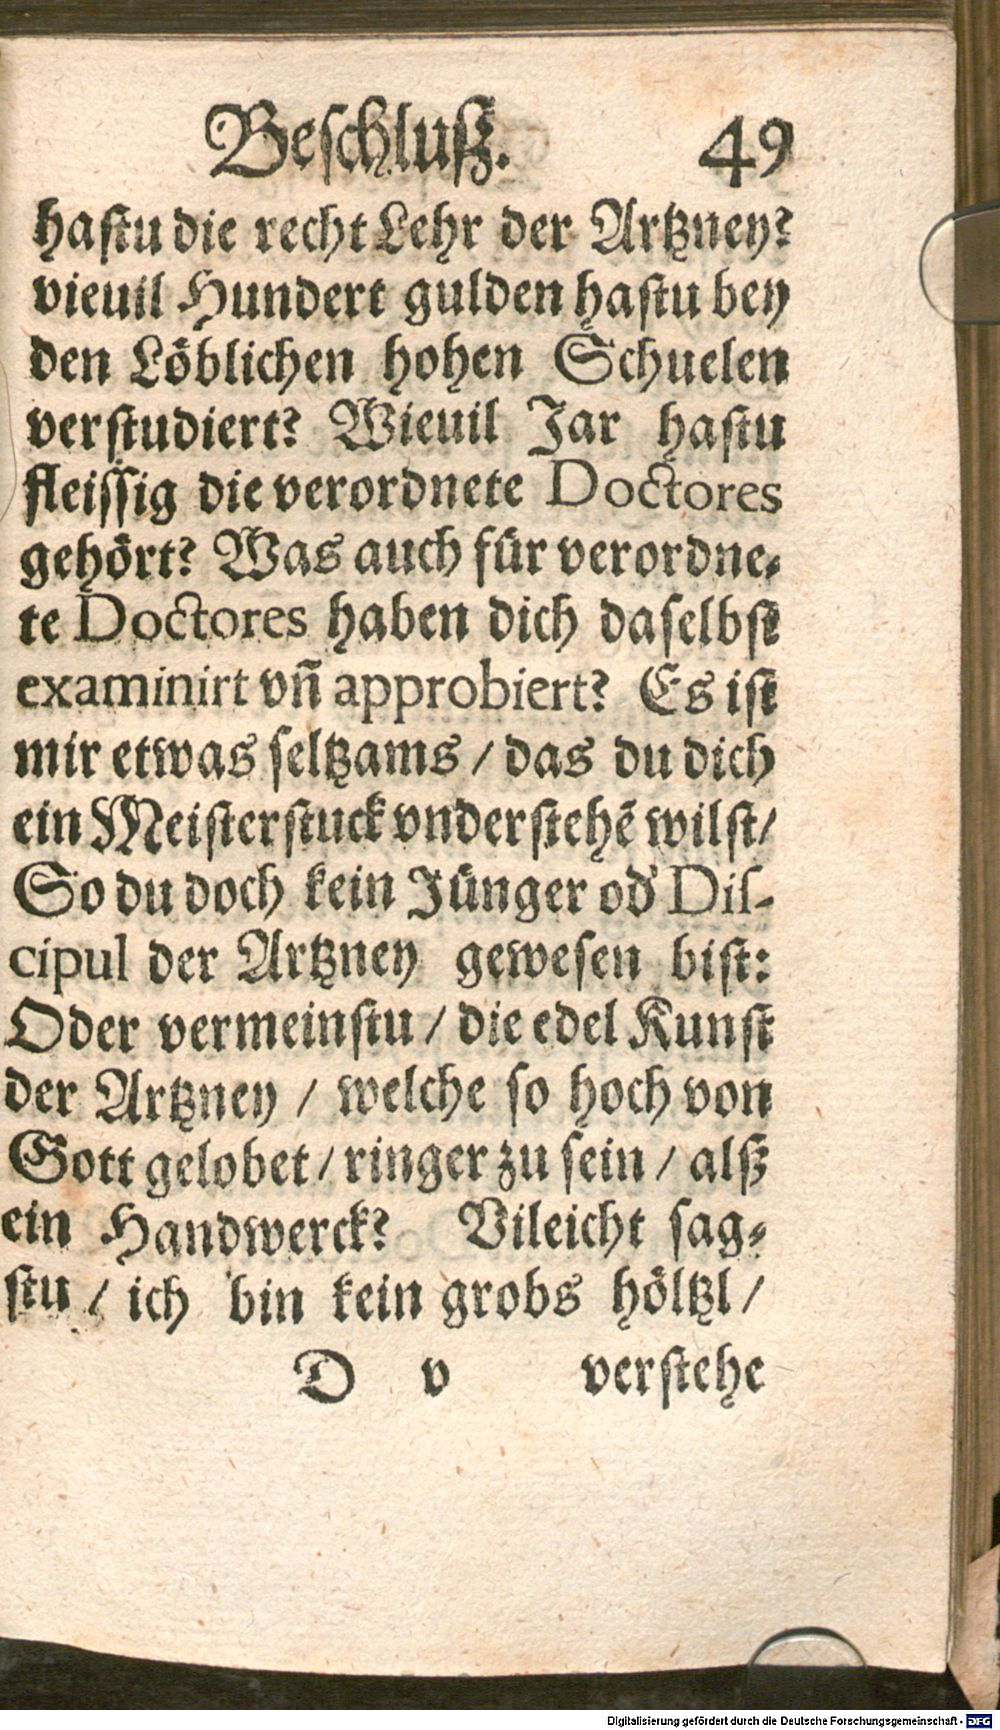 Beschluß. 49
hastu die recht Lehr der Artzney?
vieuil Hundert gulden hastu bey
den Löblichen hohen Schuelen
verstudiert? Wieuil Jar hastu
fleissig die verordnete Doctores
gehört? Was auch für verordne-
te Doctores haben dich daselbst
examinirt vñ approbiert? Es ist
mir etwas seltzams / das du dich
ein Meisterstuck vnderstehẽ wilst/
So du doch kein Jünger od' Dis-
cipul der Artzney gewesen bist:
Oder vermeinstu / die edel Kunst
der Artzney / welche so hoch von
Gott gelobet / ringer zu sein / alß
ein Handwerck? Vileicht sag-
stu / ich bin kein grobs höltzl /
D v verstehe
Digitalisierung gefördert durch die Deutsche Forschungsgemeinschaft - DFG